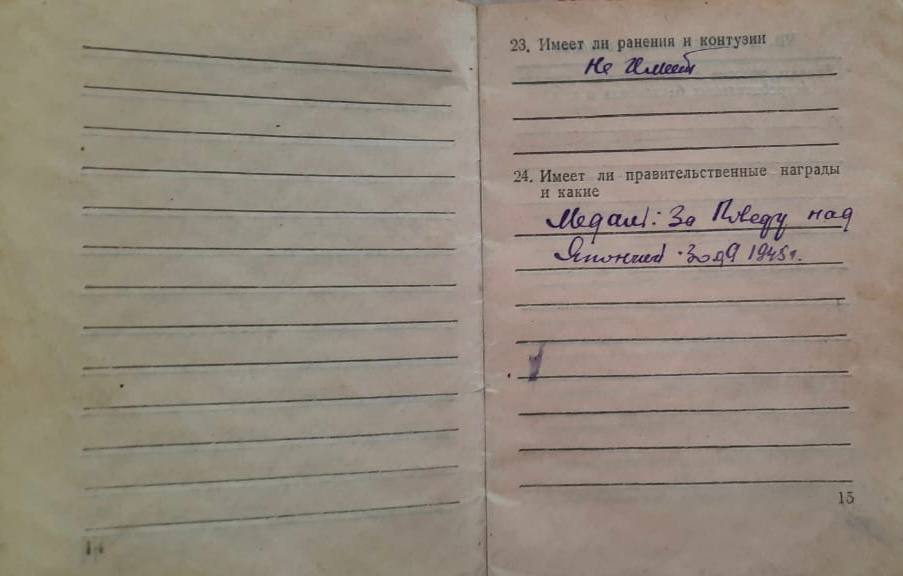 14
23. Имеет ли ранения и контузии
Не Имеет
24. Имеет ли правительственные награды
и какие
Медаль: За Победу над
Японией 1945г.
15